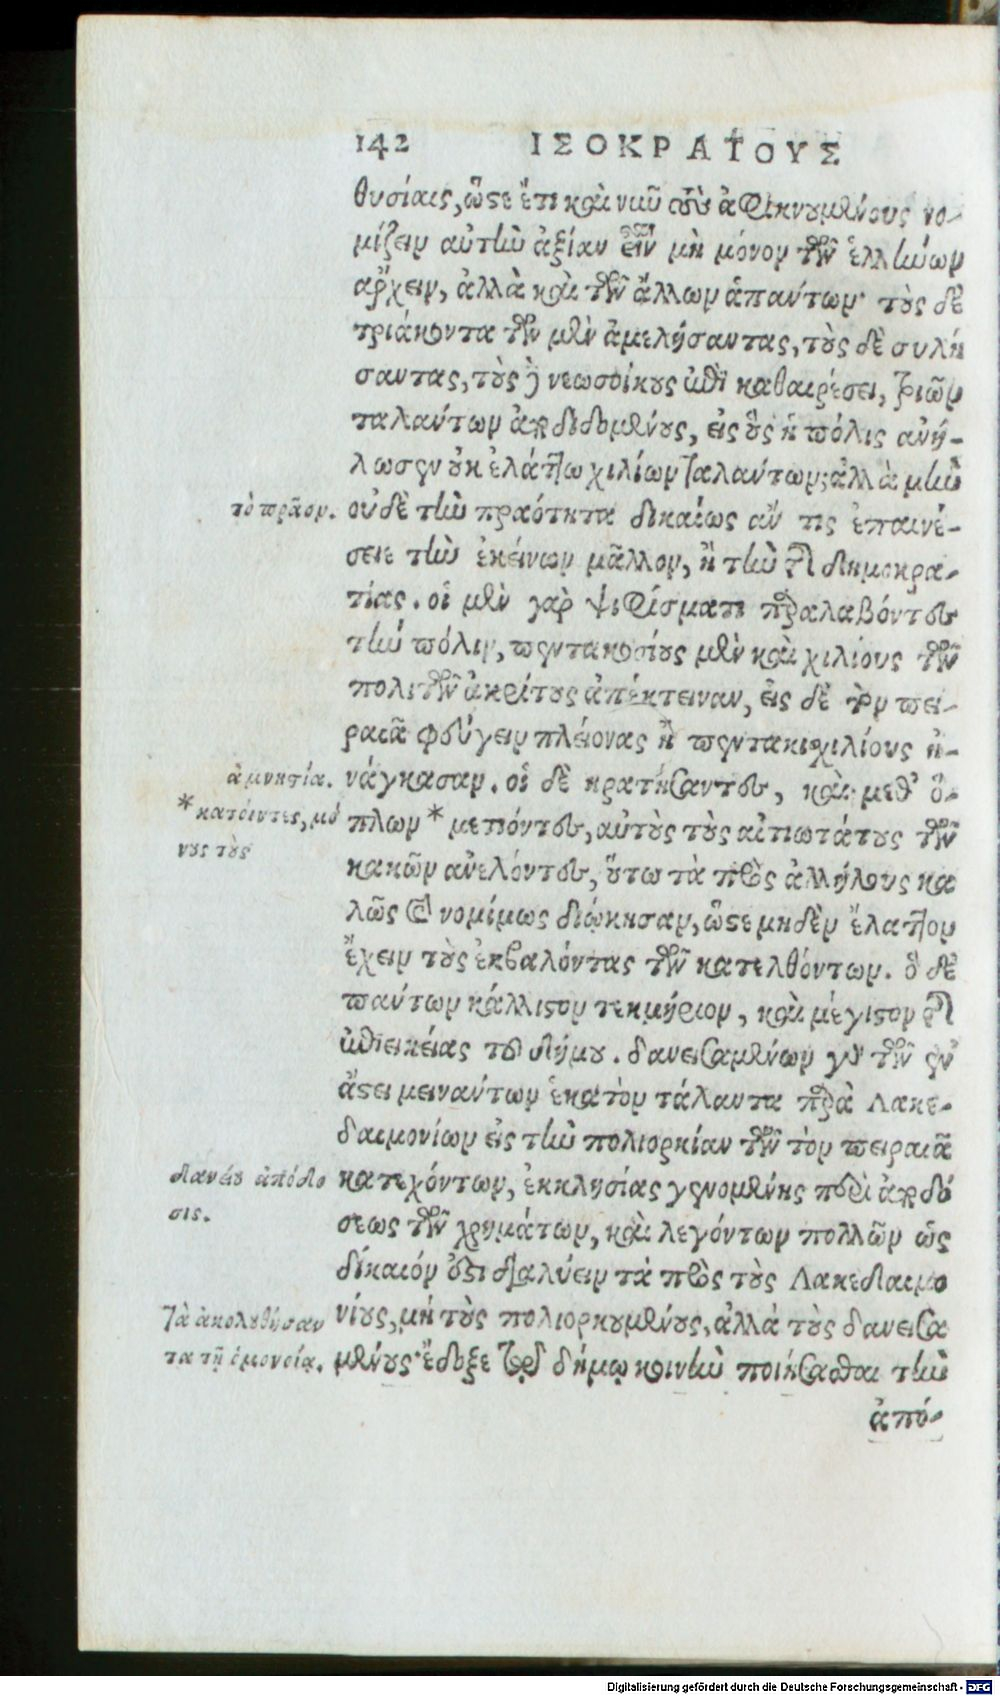 142 ΙΣΟΚΡΑΤΟΥΣ
θυσίαις, ὥστε ἔτι καὶ νῦν τοὺς ἀφικνουμένους νο-
μίζειν αὐτὴν ἀξίαν εἶναι μὴ μόνον τῶν ἑλλήνων
ἄρχειν, ἀλλὰ καὶ τῶν ἄλλων ἁπάντων· τοὺς δὲ
τριάκοντα τῶν μὲν ἀμελήσαντας, τοὺς δὲ συλή
σαντας, τοὺς δὲ νεωσοίκους ἐπὶ καθαιρέσει, τριῶν
ταλάντων ἀποδιδομένους, εἰς οὓς ἡ πόλις ἀνή-
λωσεν οὐκ ἐλάττω χιλίων ταλάντων; ἀλλὰ μὴν
τὸ πρᾶον. οὐδὲ τὴν πραότητα δικαίως ἄν τις ἐπαινέ-
σειε τὴν ἐκείνων μᾶλλον, ἢ τὴν τῆς δημοκρα-
τίας. οἱ μὲν γὰρ ψηφίσματι παραλαβόντες
τὴν πόλιν, πεντακοσίους μὲν καὶ χιλίους τῶν
πολιτῶν ἀκρίτους ἀπέκτειναν, εἰς δὲ τὸν πει-
ραιᾶ φεύγειν πλείονας ἢ πεντακισχιλίους ἠ-
ἀμνηστία. νάγκασαν. οἱ δὲ κρατήσαντες, καὶ μεθ’ ὅ-
*κατιόντες, μό πλων * μετιόντες, αὐτοὺς τοὺς αἰτιωτάτους τῶν
νους τοὺς
κακῶν ἀνελόντες, οὕτω τὰ πρὸς ἀλλήλους κα
λῶς καὶ νομίμως διῴκησαν, ὥστε μηδὲν ἔλαττον
ἔχειν τοὺς ἐκβαλόντας τῶν κατελθόντων. ὃ δὲ
πάντων κάλλιστον τεκμήριον, καὶ μέγιστον τῆς
ἐπιεικείας τοῦ δήμου. δανεισαμένων γὰρ τῶν ἐν
ἄστει μεινάντων ἑκατὸν τάλαντα παρὰ Λακε-
δαιμονίων εἰς τὴν πολιορκίαν τῶν τὸν πειραιᾶ
δανείου ἀπόδο κατεχόντων, ἐκκλησίας γενομένης περὶ ἀποδό
σις. σεως τῶν χρημάτων, καὶ λεγόντων πολλῶν ὡς
δίκαιόν ἐστι διαλύειν τὰ πρὸς τοὺς Λακεδαιμο
τὰ ἀκολουθήσαν νίους, μὴ τοὺς πολιορκουμένους, ἀλλὰ τοὺς δανεισα
τα τῇ ὁμονοίᾳ. μένους· ἔδοξε τῷ δήμῳ κοινὴν ποιήσασθαι τὴν
ἀπό-
Digitalisierung gefördert durch die Deutsche Forschungsgemeinschaft - DFG